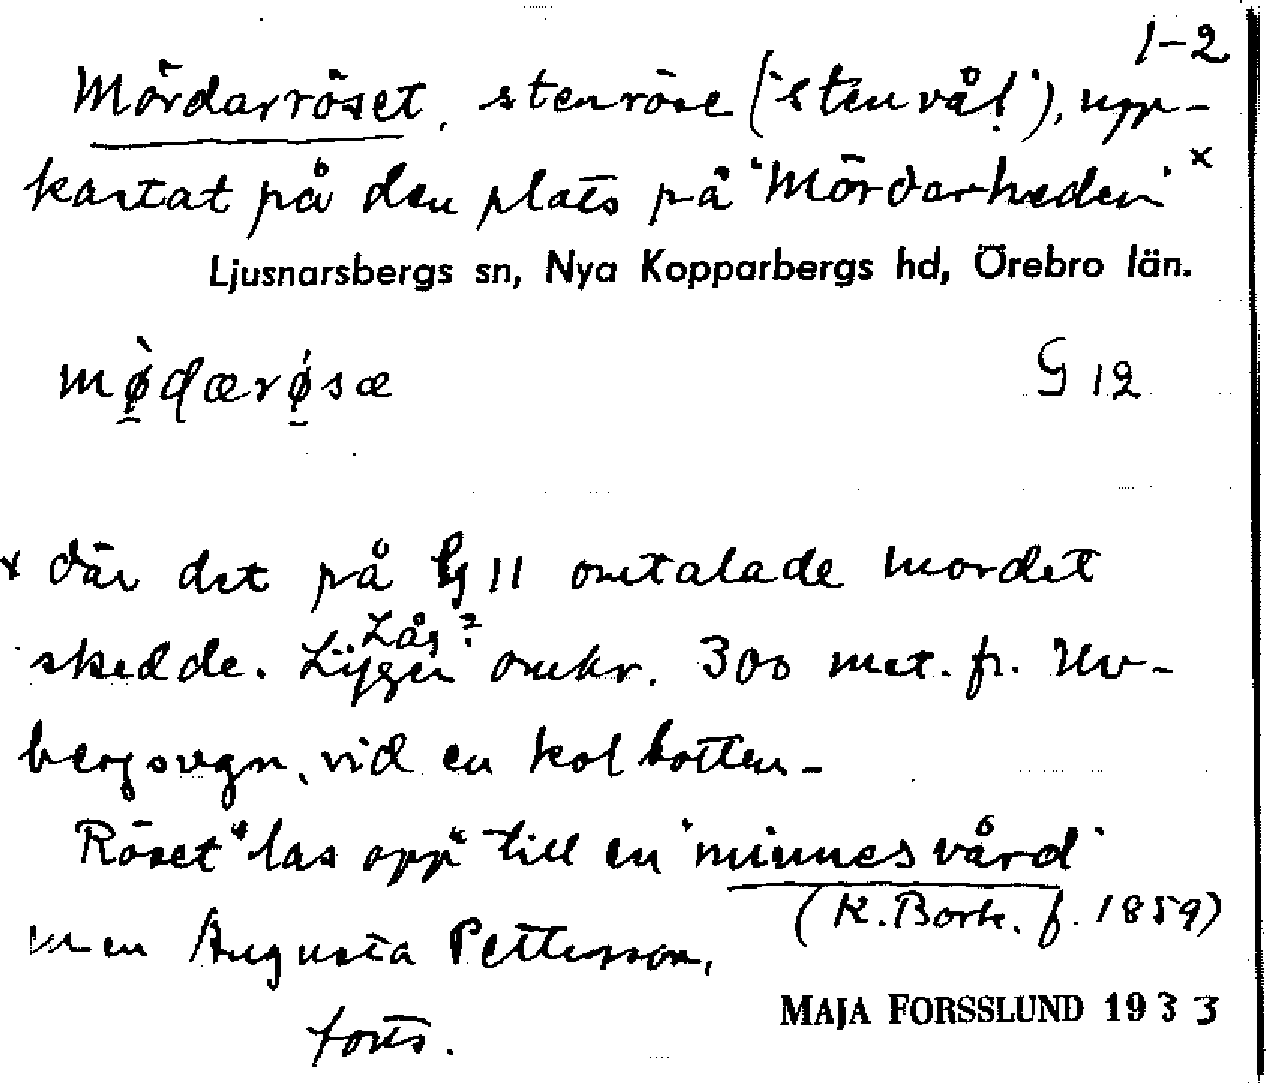 1-2
Mördarröset, stenröse ('stenvål'), upp-
kastat på den plats på 'Mördarheden' x
Ljusnarsbergs sn, Nya Kopparbergs hd, Örebro län.
mø̀dærǿsæ G 12
x där det på G 11 omtalade mordet
Låg?
skedde. Ligger omkr. 300 met. fr.
bergsvägn, vid en kolbotten-
Röset "las opp" till en 'minnesvård'
(K. Bork. f. 1859)
men Augusta Pettersson,
forts.
MAJA FORSSLUND 1933